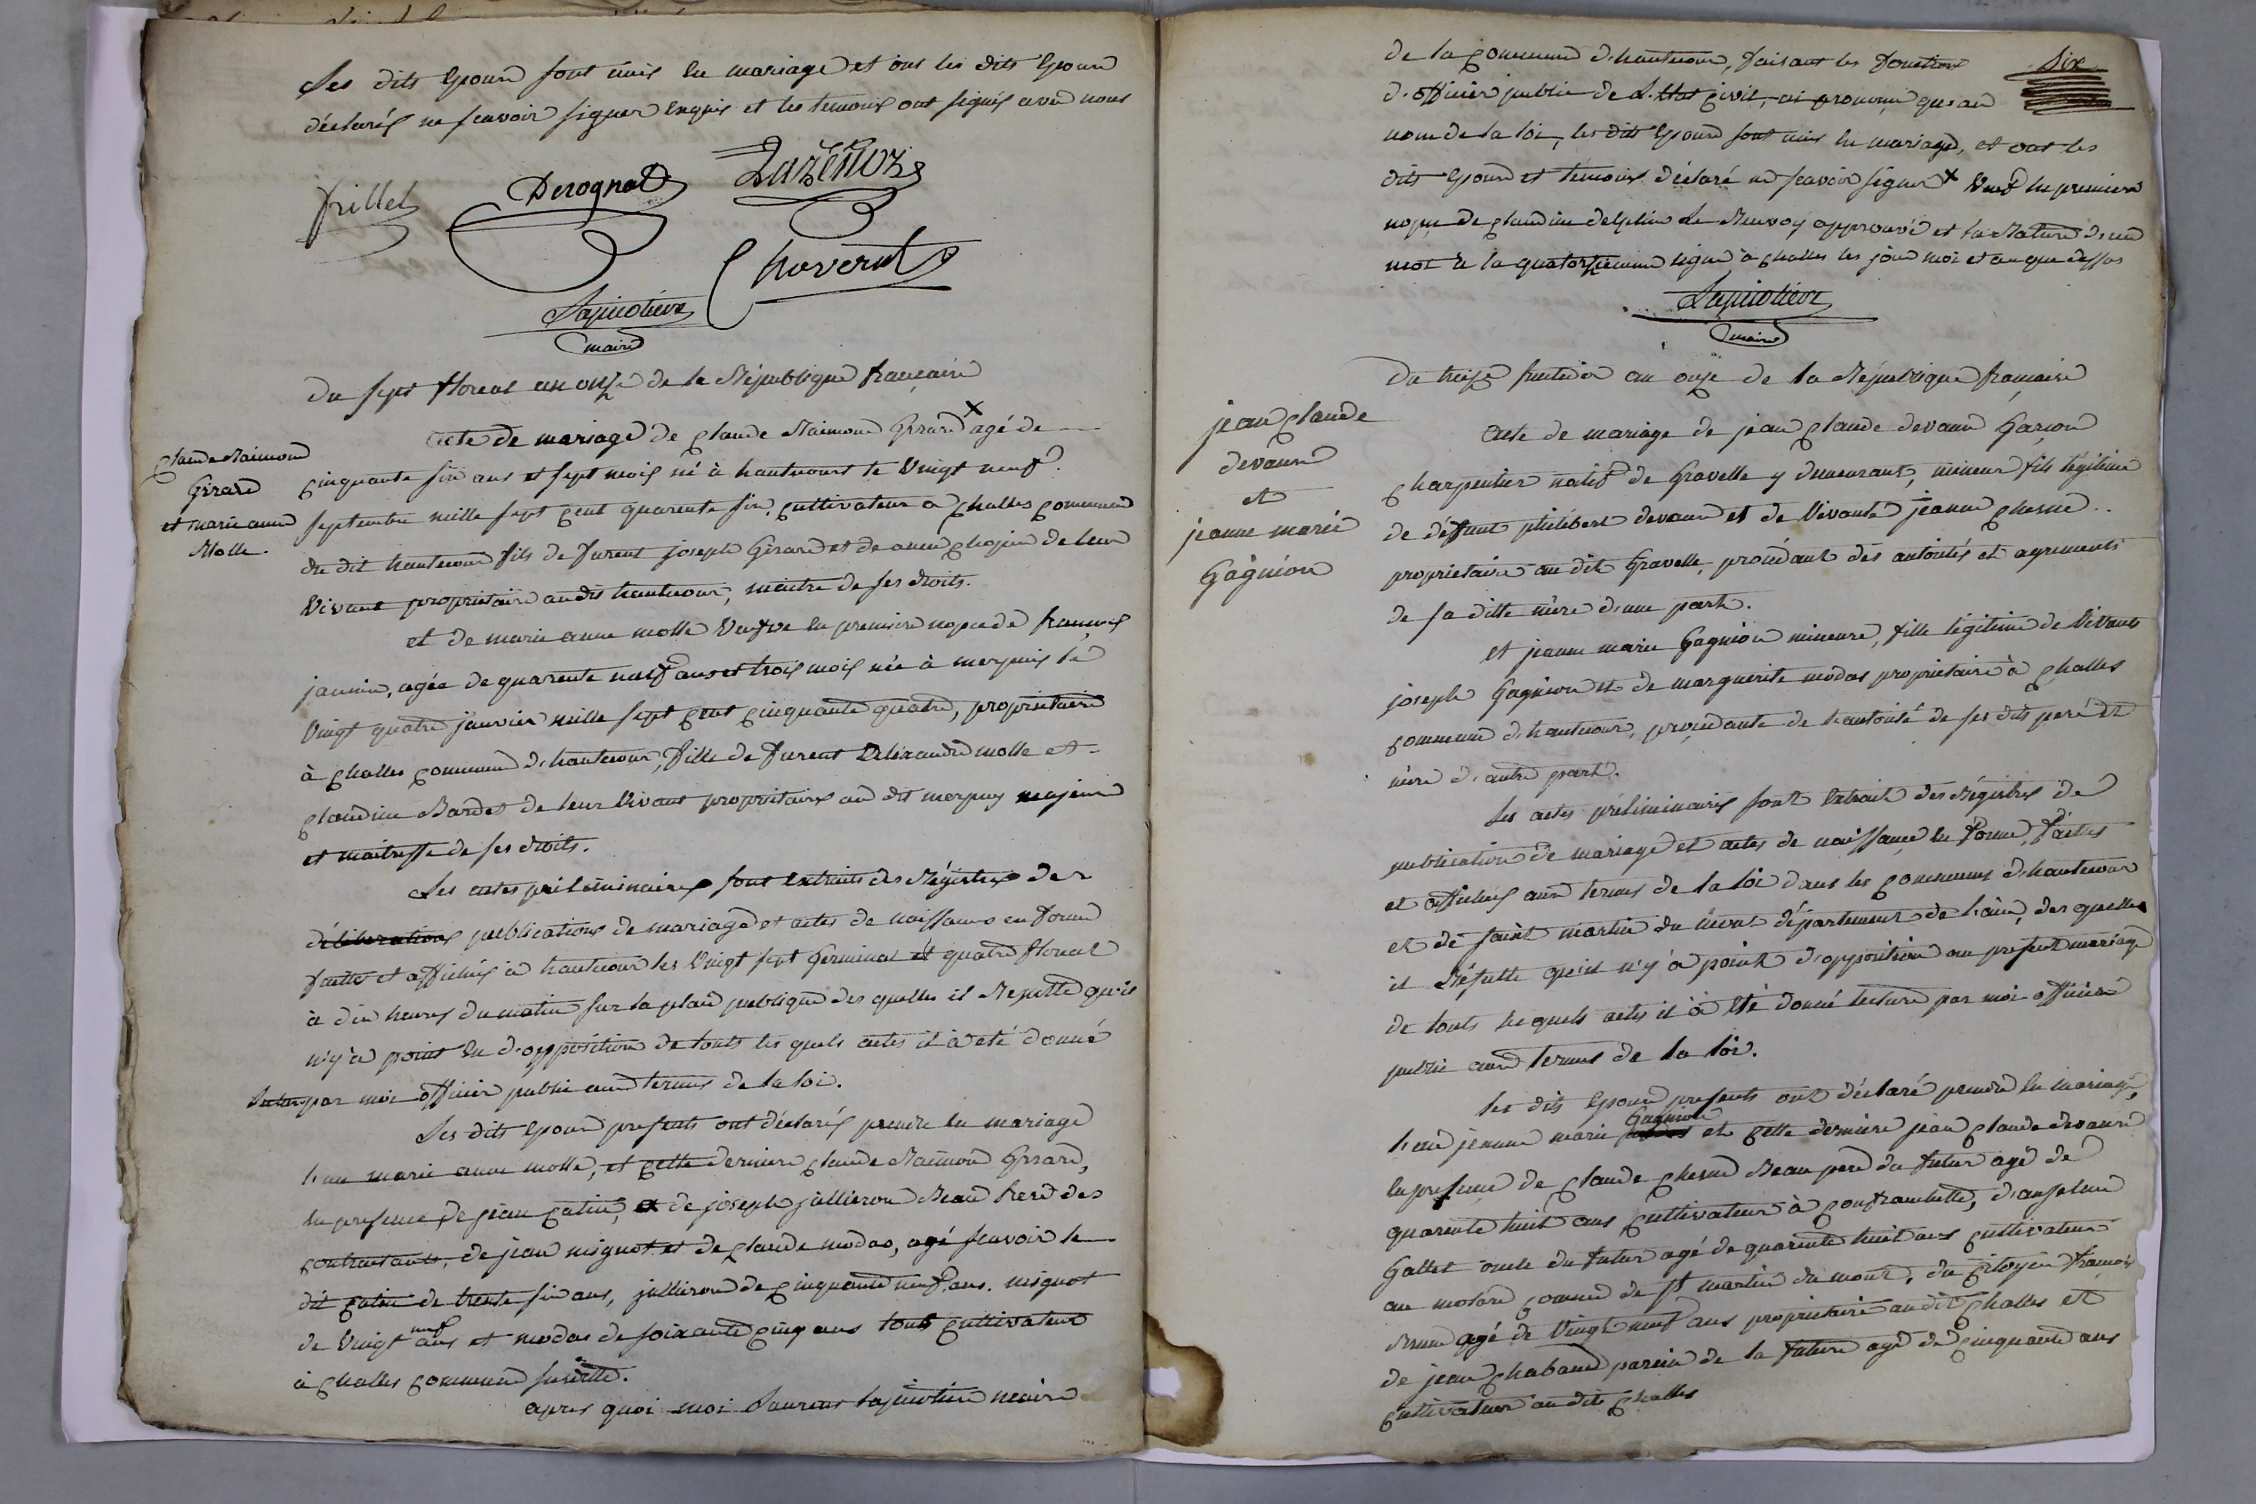 Les dits Epoux sont unis en mariage et ont les dits Epoux
déclarés ne scavoir signer Enquis et les temoins ont signés avec nous
frillet
Derognat
Chaverot
Lapierre
maire
Du sept floreal an onze de la République française
Claude Raimond
Girard
et marie anne
Molle.
Acte de mariage de Claude Raimond Girard x agé de
cinquante six ans et sept mois né à hautecourt le Vingt neuf
septembre mille sept cent quarente six, cultivateur a Challes commune
du dit hautecour fils de furent joseph Girard et de anne de leur
Vivant propriétaire audit hautecour, maitre de ses droits.
et de marie anne molle Veufve en premiere nopce de françois
janin, agée de quarente neuf ans et trois mois née à merpuis le
Vingt quatre janvier mille sept cent cinquante quatre, propriétaire
à Challes commune d'hautecour, fille de furent Alexandre molle et
Claudine Bardet de leur Vivant proprietaire au dit merpuy majeure
et maitresse de ses droits.
Les actes préliminaires sont Extraits des Régistres de
délibérations publications de mariage et actes de naissance en forme
faitte et affichés à hautecour les Vingt sept Germinal et quatre floreal
à dix heures du matin sur la place publique des quelles il Resulte qu'il
n'y a point Eu d'opposition de touts les quels actes il a eté donné
lecture par moi officier public aux termes de la loi.
Les dits Epoux presents ont déclarés prendre en mariage
l'un marie anne molle, et cette derniere Claude Raimond Girard,
En presence de jean catin, et de joseph jullieron Beau frere des
contractants, de jean mignot et de Claude modas, agé scavoir le
dit catin de trente six ans, jullieron de cinquante neuf ans. mignot
neuf
de Vingt ans et modas de soixante cinq ans touts cultivateur
à Challes commune susditte.
apres quoi moi Laurent maire
Six
de la Commune d'hautecour, faisant les fonctions
d'officier public de l'Etat civil, ai prononcé qu'au
nom de la loi, les dits Epoux sont unis en mariage, et ont les
dits Epoux et temoins déclaré ne scavoir signer x Veuf En premiere
nopce de Claudine delphine Le Renvoy approuvé et la Rature d'un
mot à la quatorzieme ligne à Challes les jour moi et an que dessus
maire
Du treize fructidor an onze de la République française
jean Claude
devaux
et
jeanne marie
Gagnion
Acte de mariage de jean Claude devaux Garçon
Charpentier natif de Gravelle y demeurant, mineur fils légitime
de défunt philibert devaux et de Vivante jeanne Chesne..
proprietaire au dit Gravelle, procédant des autorités et agrements
de sa ditte mère d'une part.
et jeanne marie Gagnion mineure, fille légitime de Vivants
joseph Gagnion et de marguerite modas proprietaire à Challes
commune d'hautecour, procedante de l'autorité de ses dits pere et
mère d'autre part.
Les actes préliminaires sont Extrait des Régistres de
publication de mariage et actes de naissance en forme, faites
et affichés aux termes de la loi dans les communes d'hautecour
et de saint martin du mont département de l'ain, des quelles
il Résulte qu'il n'y a point d'opposition au present mariage
de touts les quels actes il a Eté donné lecture par moi officier
public aux termes de la loi.
Les dits Epoux presents ont déclaré prendre en mariage,
Gagnion
l'un jeanne marie et cette derniere jean Claude devaux
En presence de Claude Chesne Beau pere du futur agé de
quarente huit ans cultivateur à confranchette, d'anselme
Gallet oncle du futur agé de quarente huit ans cultivateur
au molard commune de st martin du mont, du citoyen françois
Brun agé de Vingt neuf ans proprietaire au dit Challes et
de jean Chaband parein de la future agé de cinquante ans
cultivateur au dit Challes